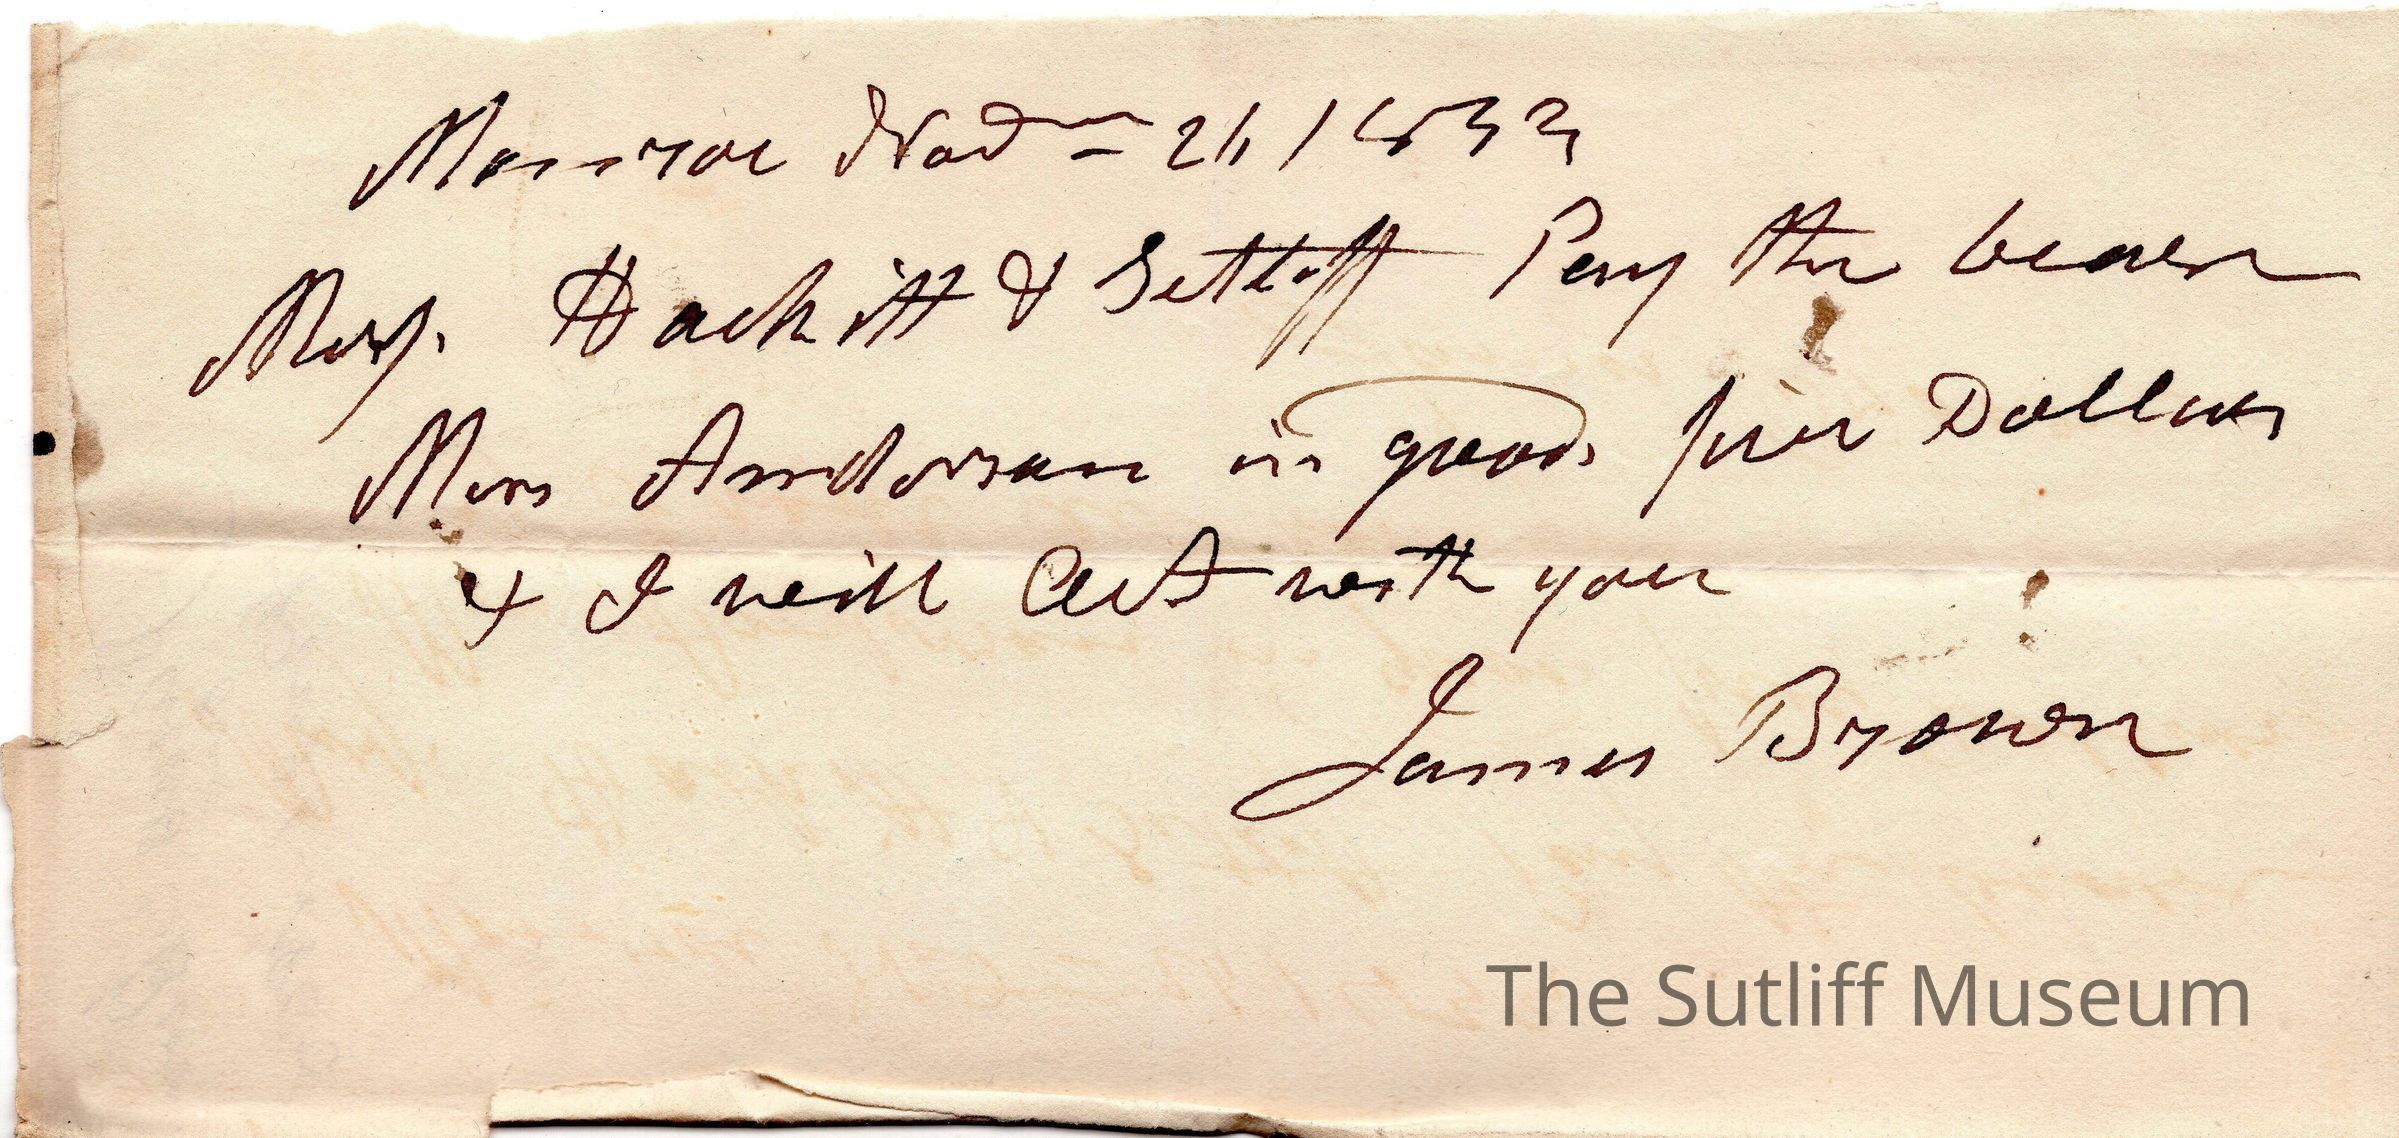 Monroe Nov 21 1833
Mess. Hackitt & Setleff Pay the bearer
Mrs Anderson in goods five Dollars
& I will Act with you
James Brown
The Sutliff Museum